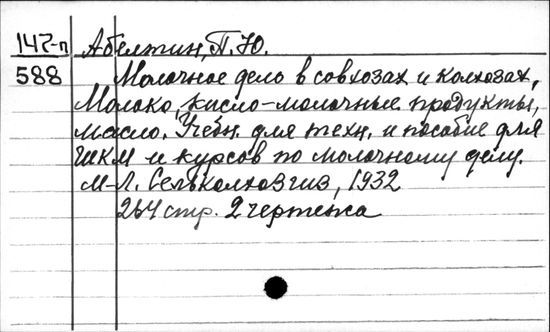 147-п Абелтин, П. Ю.
588 Молочное дело в совхозах и колхозах,
Молоко, кисло-молочные продукты,
масло. Учебн. для техн. и пособие для
ШКМ и курсов по молочному делу.
М-Л. Сельколхозгиз, 1932
264 стр. 2 чертежа